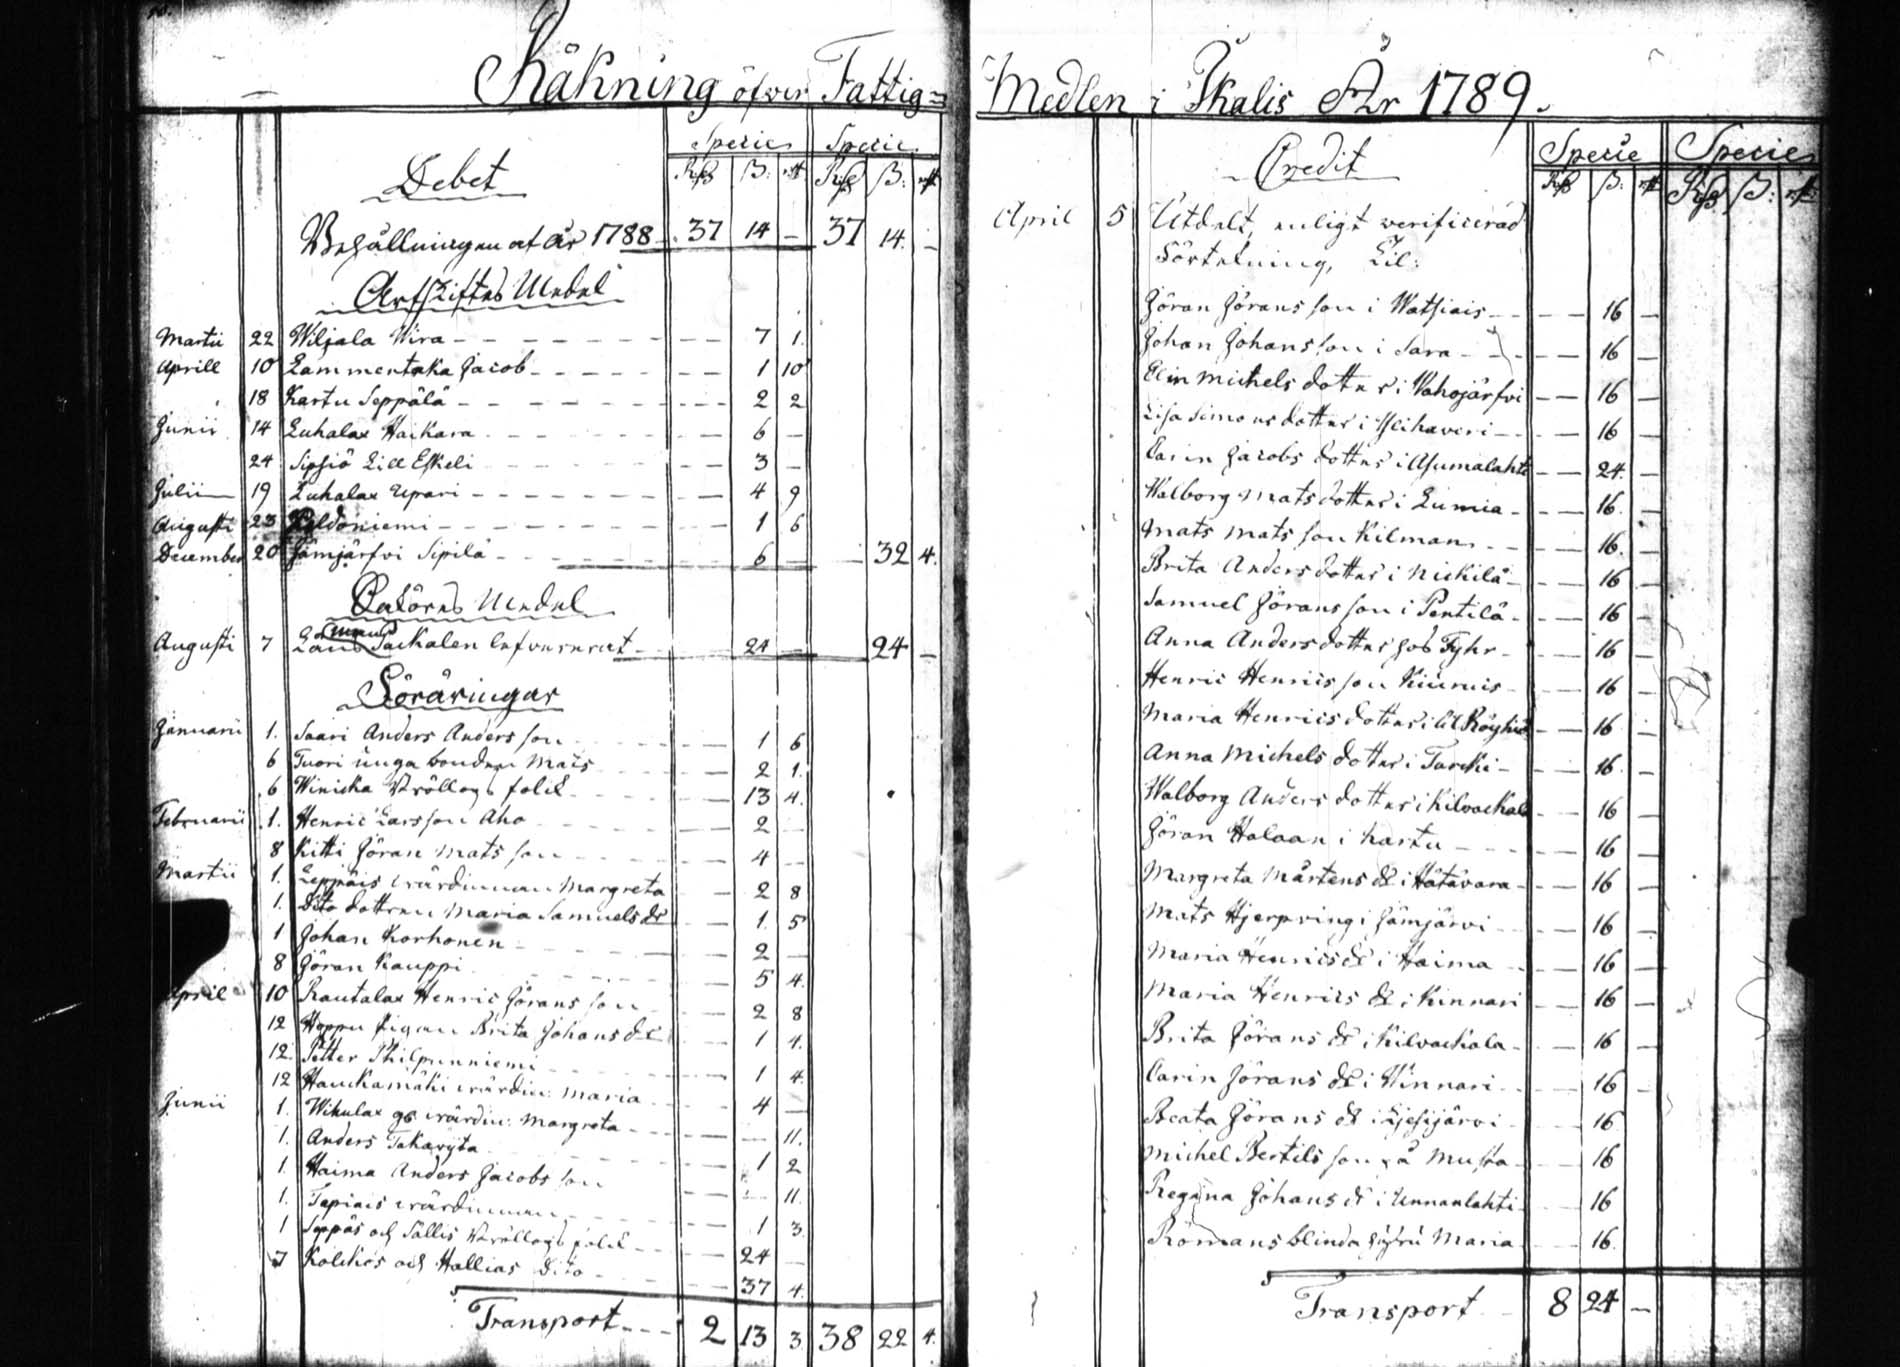 Räkning öfver Fattig=
Debet
Specie Specie
Rd ß: rst Rd ß: rst
Behållningen af år 1788 37 14 — 37 14. —
Arfskiftes Medel
Martii 22 Wiljala Wira 7 1.
Aprill 10 Lammentaka Jacob 1 10
18 Kartu Seppälä 2 2
Junii 14 Luhalax Haikara 6 —
24 Sipsiö Lill Eskeli 3 —
Julii 19 Luhalax Upari 4 9
Augusti 23 1 6
December 20 Jämjärfvi Sipilä 6 — 32 4.
Medel
Augusti 7 24 — 24 —
Föräringar
Januarii 1. Saari Anders Andersson 1 6
6 Tuori unga bonden Mats 2 1.
6 Winicka Bröllops folck 13 4.
Februarii 1. Henric Larsson Aho 2 —
8 Kitti Jöran Matsson 4 —
Martii 1. Leppäis wärdinnan Margreta 2 8
1. Dito dottren Maria Samuels dr 1. 5
1 Johan Korhonen 2 —
8 Jöran Kauppi 5 4.
April 10 Rautalax Henric Jöransson 2 8
12 Hoppu Pigan Brita Johans dr 1 4.
12. Petter Philpunniemi 1 4.
12 Hauckamäki wärdin: Maria 4 —
Junii 1. Wikulax wärdin: Margreta — 11.
1. Anders Takavyta 1 2
1. Haima Anders Jacobsson — 11.
1. Tapiais wärdinnan 1 3.
1 Seppäs och Sällis Bröllops folck 24 —
7 Kolckos och Hallias dito 37 4.
Transport 2 13 3 38 22 4.
Medlen i Ikalis År 1789.
Credit
Specie Specie
Rd ß: rst Rd ß: rst
April 5 Utdelt, enligt verificerad
Förtekning, Til:
Jöran Jöransson i Watsiais 16 —
Johan Johansson i Sara 16 —
Elin Michels dotter i Wahojärfvi 16 —
Lisa Simons dotter i 16 —
Carin Jacobs dotter i Asumalahti 24. —
Walborg Mats dotter i Lumia 16. —
Mats Matsson Kilman 16. —
Brita Anders dotter i Nickilä 16 —
Samuel Jöransson i Pentilä 16 —
Anna Anders dotter hos Fyhr 16 —
Henric Henricsson 16 —
Maria Henrics dotter i Lill Röyhiö 16 —
Anna Michels dotter i Turcki 16. —
Walborg Anders dotter i Kilvackala 16 —
Jöran Halaan i Kartu 16 —
Margreta Mårtens dr i Hätävara 16 —
Mats Hjerpving i Jämjärvi 16 —
Maria Henrics dr i Haima 16 —
Maria Henrics dr i Kinnari 16 —
Brita Jörans dr i Kilvackala 16 —
Carin Jörans dr i Kinnari 16 —
Beata Jörans dr i 16
Michel Bertilsson på Musta 16
Regina Johans dr i Unnanlahti 16
Römans blinda hustru Maria 16.
Transport 8 24 —